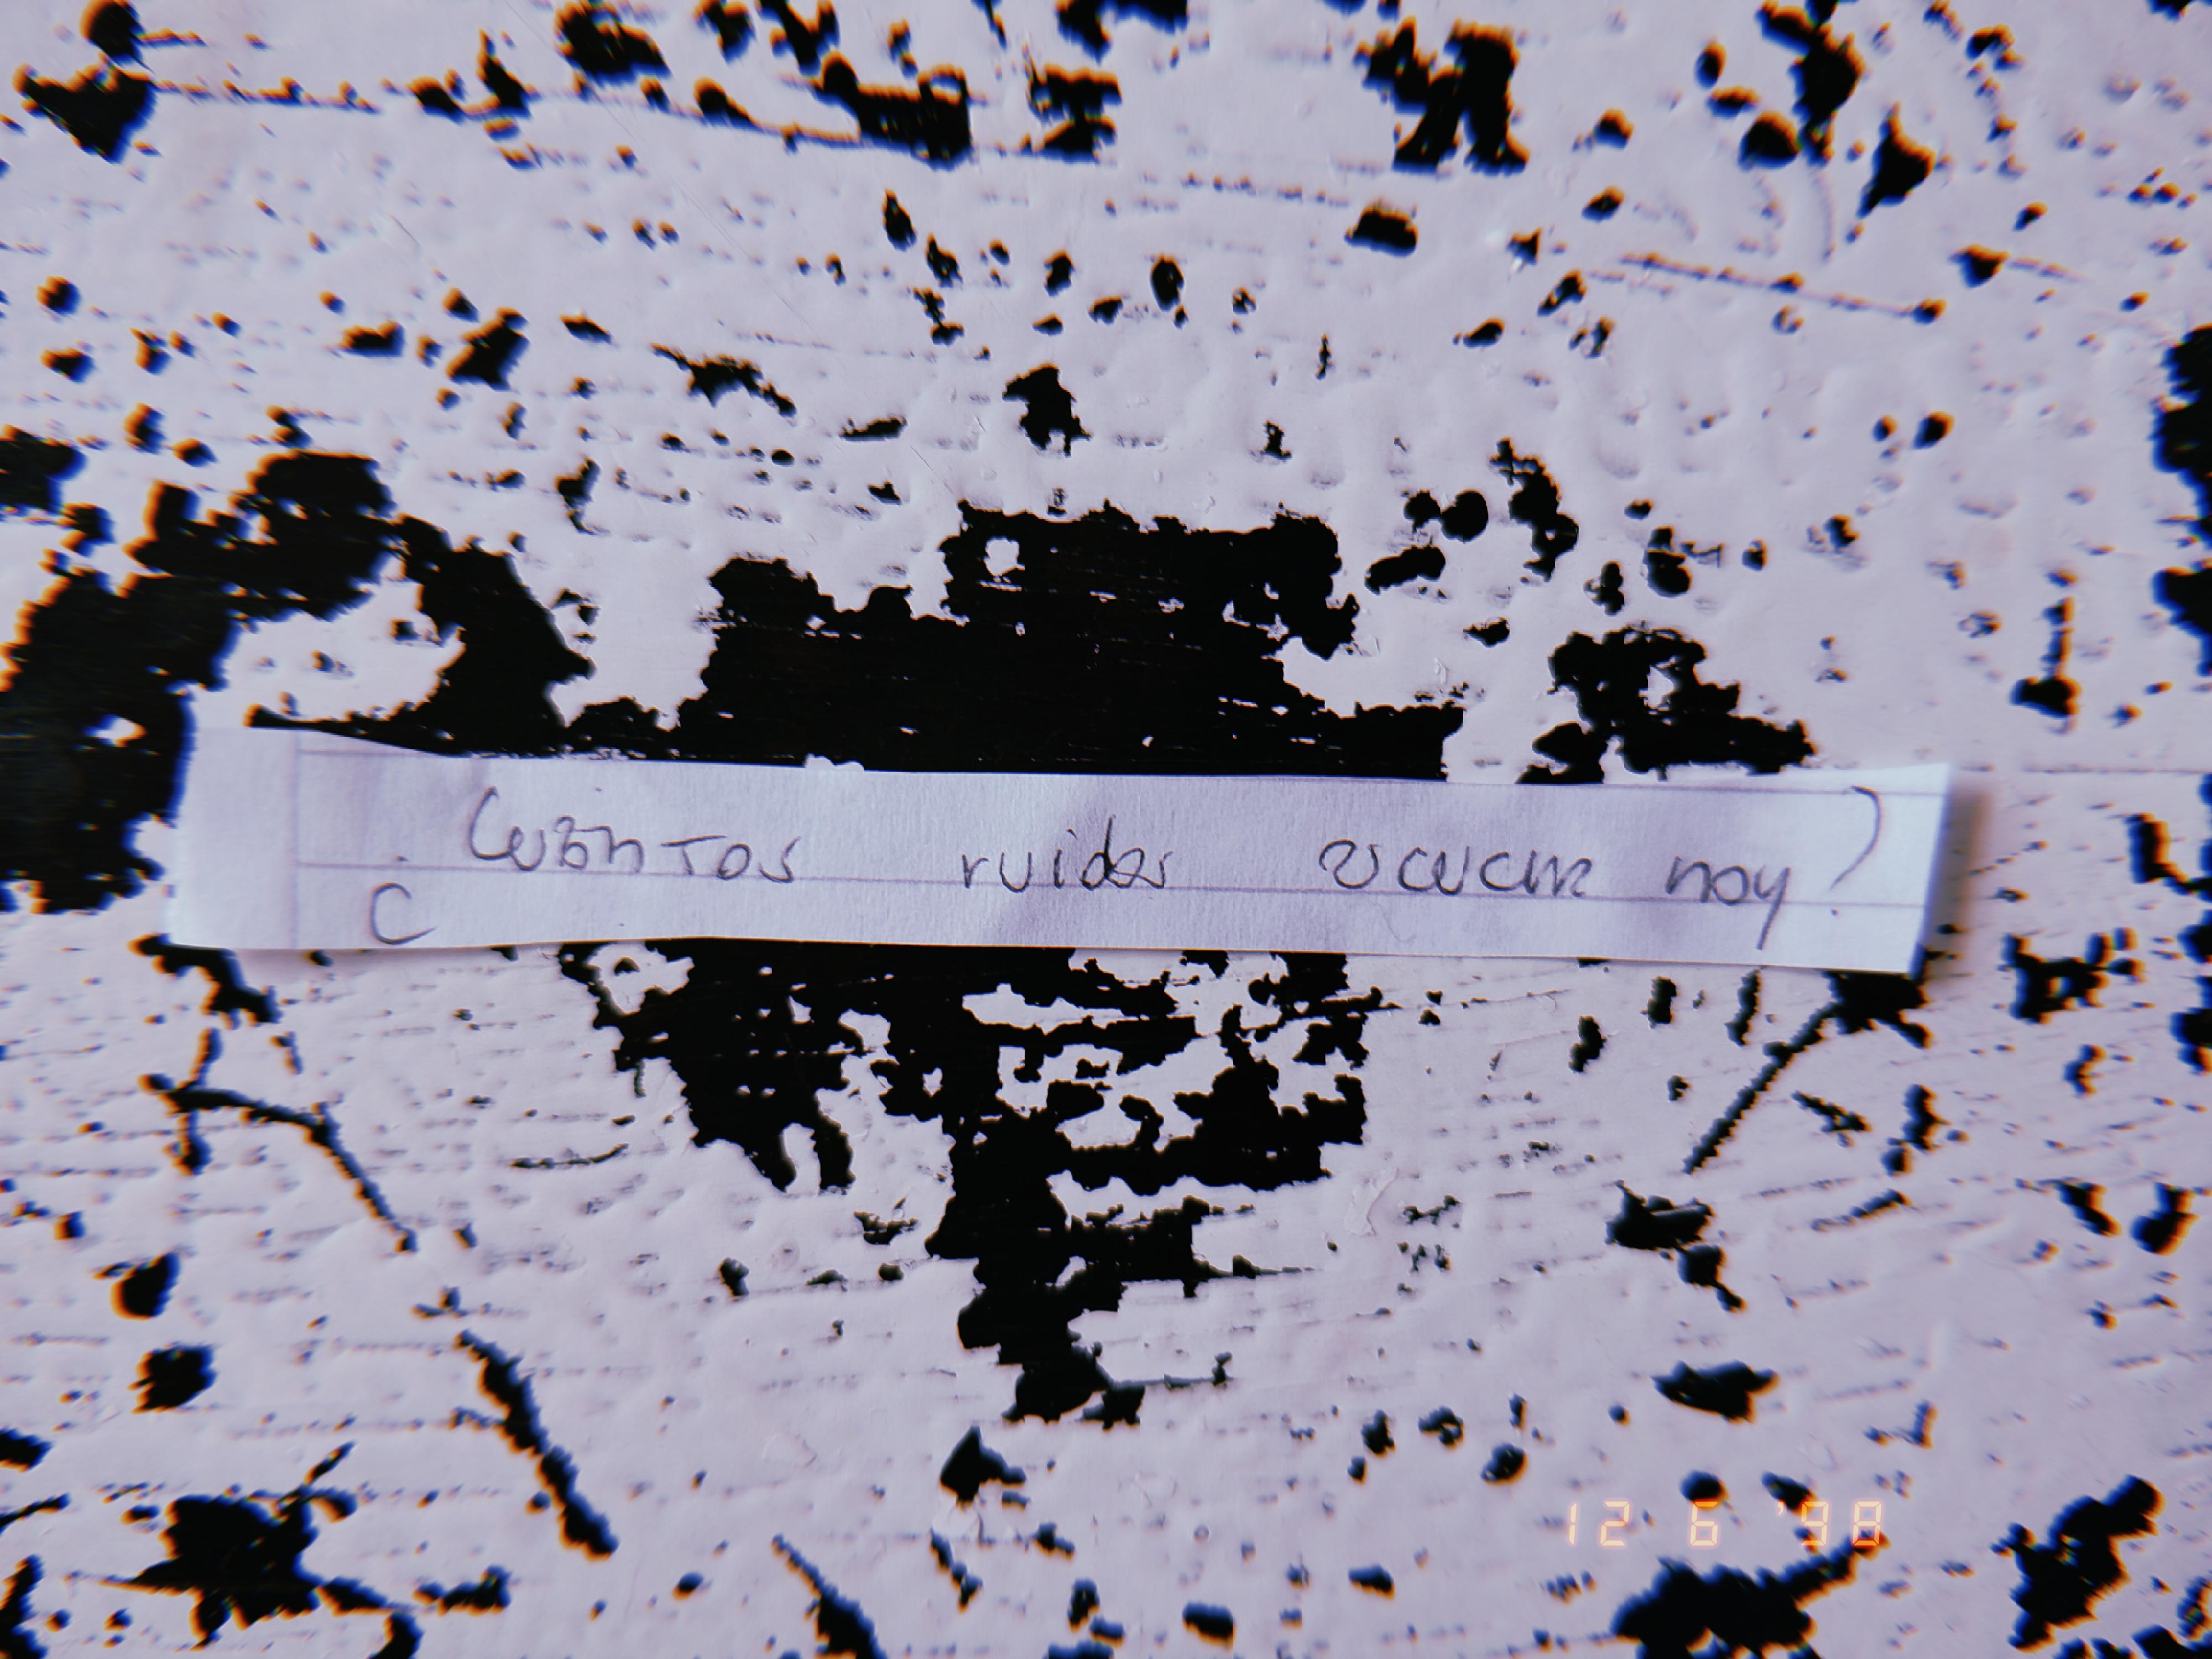 ¿Cuántos ruidos escuche hoy?
12 6 '98